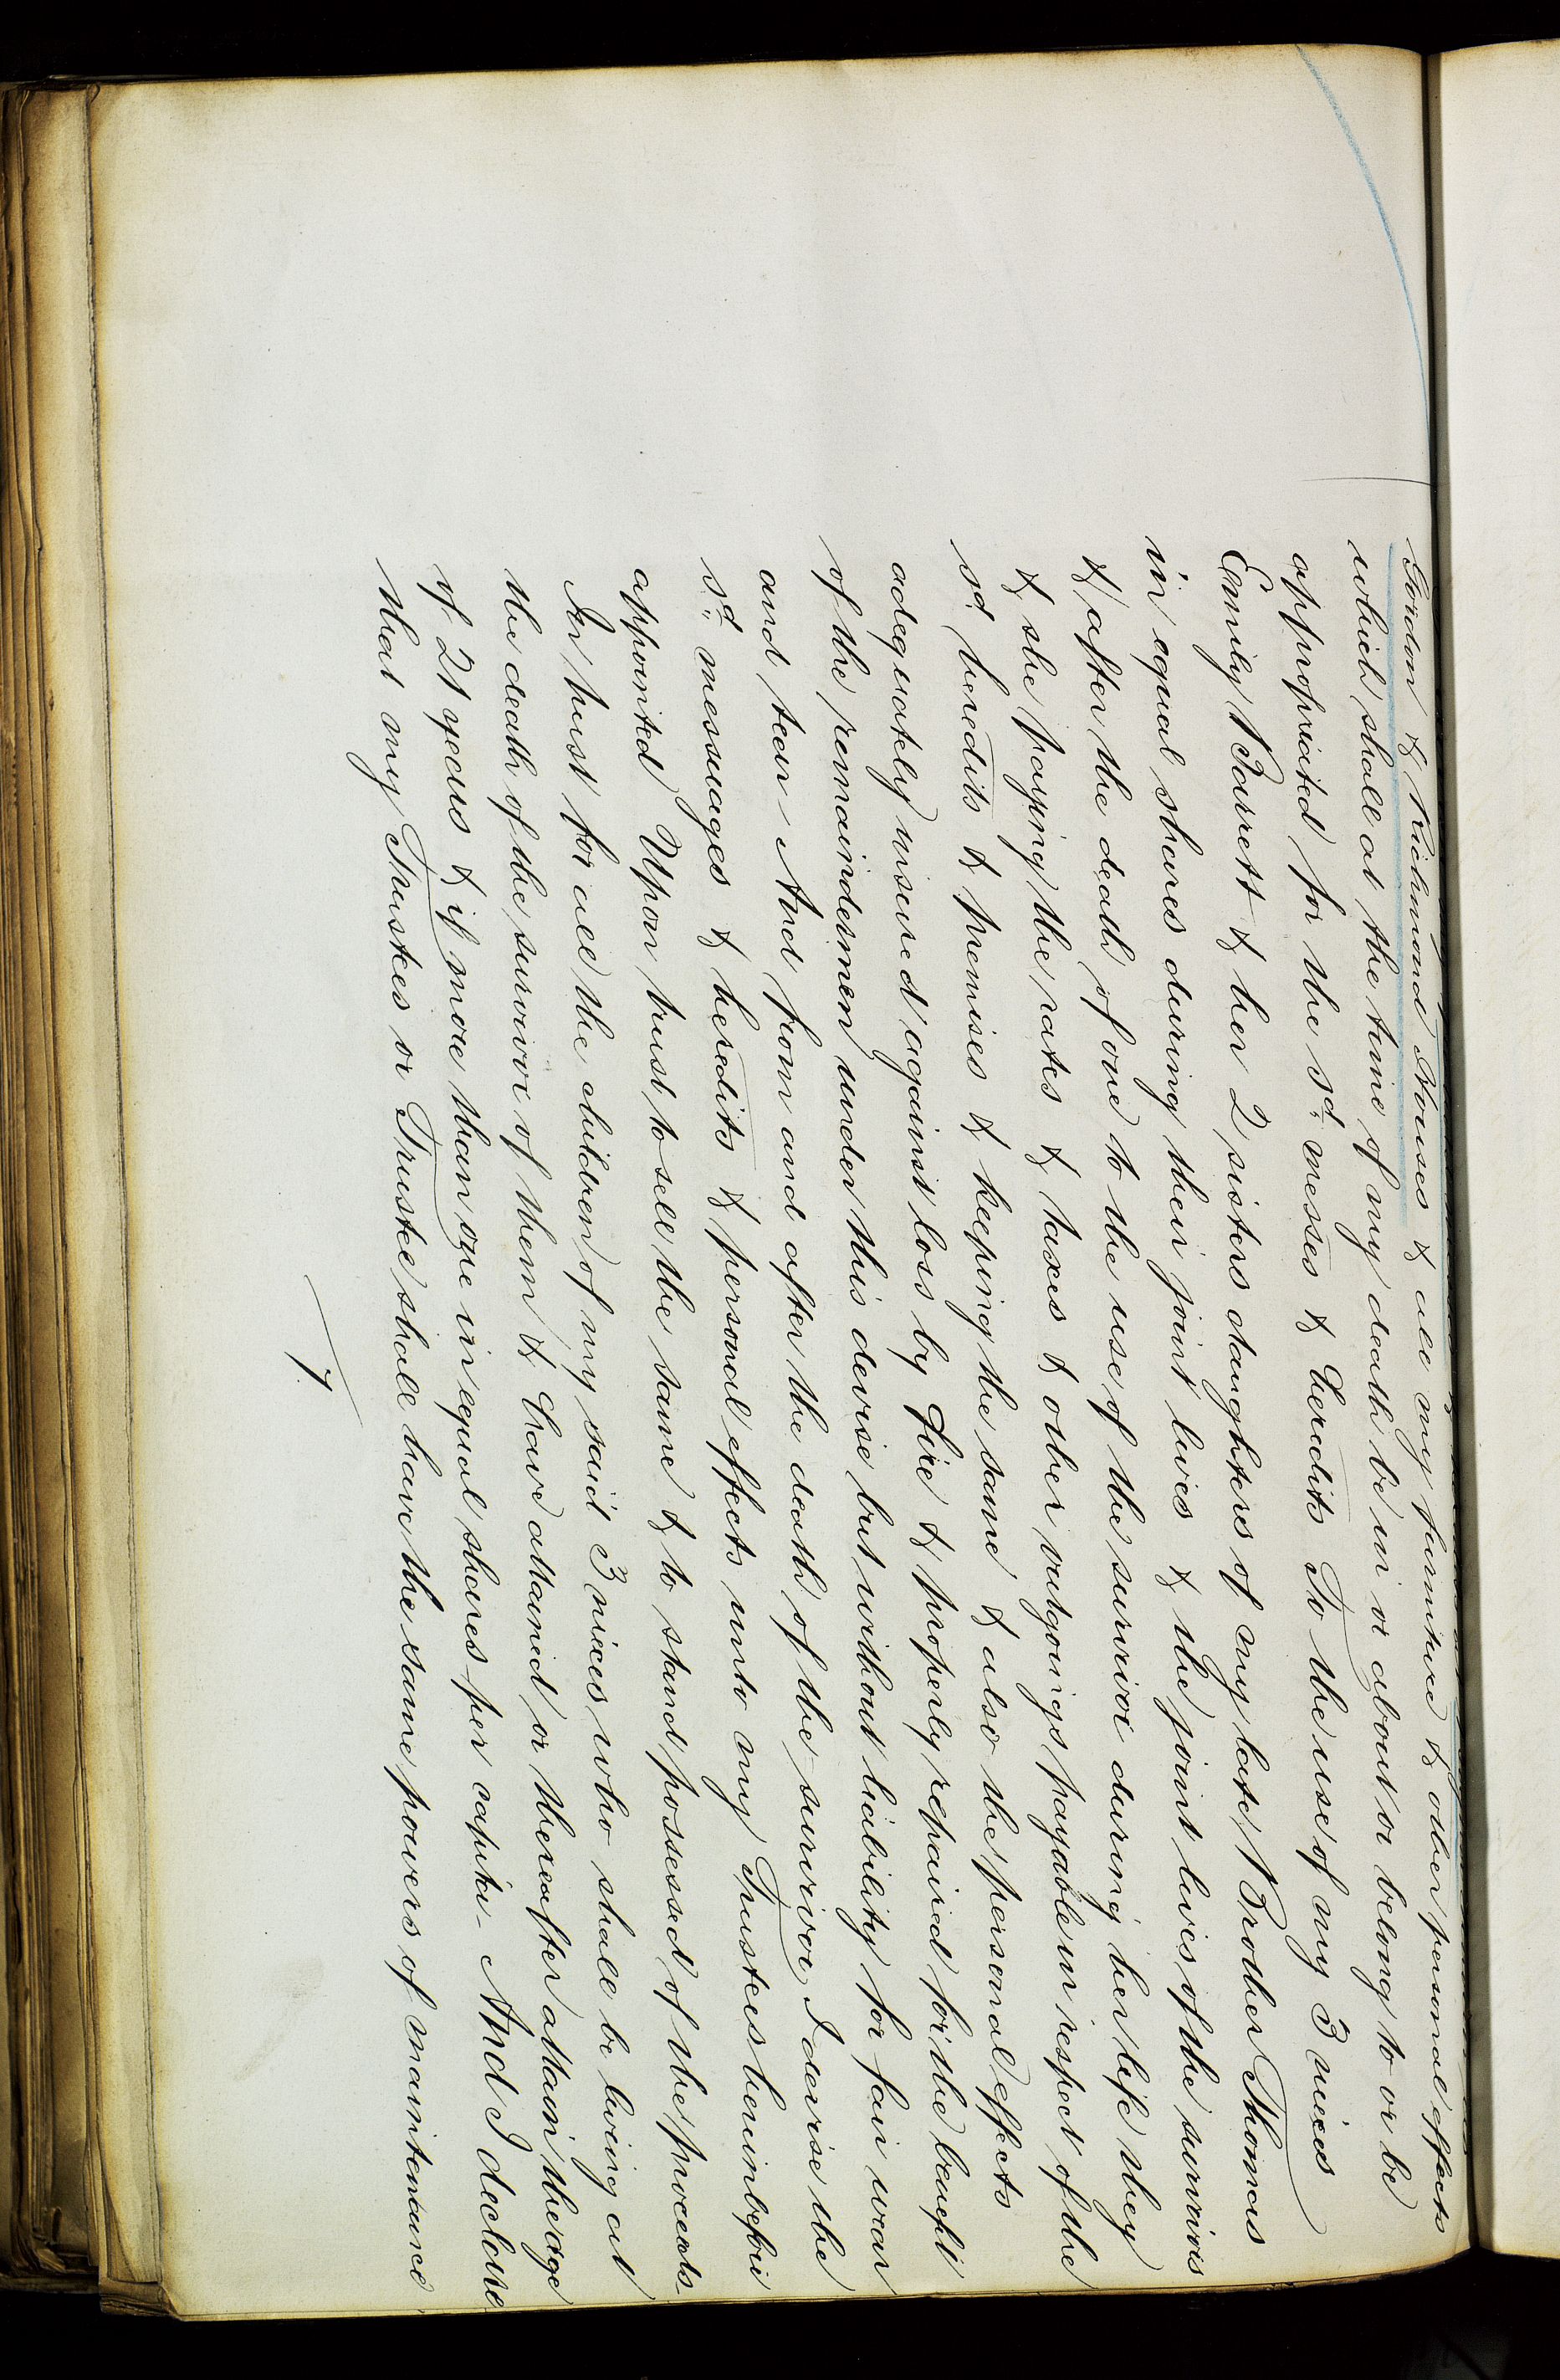 Gordon & Richmond Houses & all my furniture & other personal effects
which shall at the time of my death be in or about or belong to or be
appropriated for the sd. messes & heredits To the use of my 3 nieces
Emily Barrett & her 2 sisters daughters of my late Brother Thomas
in equal shares during their joint lives & the joint lives of the survivors
& after the death of one to the use of the survivor during her life they
& she paying the rates & taxes & other outgoings payable in respect of the
sd. heredits & premises & keeping the same & also the personal effects
adequately insured against loss by Fire & properly repaired for the benefit
of the remaindermen under this devise but without liability for fair wear
and tear And from and after the death of the survivor I devise the
sd. messuages & heredits & personal effects unto my Trustees hereinbefore
appointed Upon trust to sell the same & to stand possessed of the proceeds
In trust for all the children of my said 3 nieces who shall be living at
the death of the survivor of them & have attained or thereafter attain the age
of 21 years & if more than one in equal shares per capita - And I declare
that my Trustees or Trustee shall have the same powers of maintenance